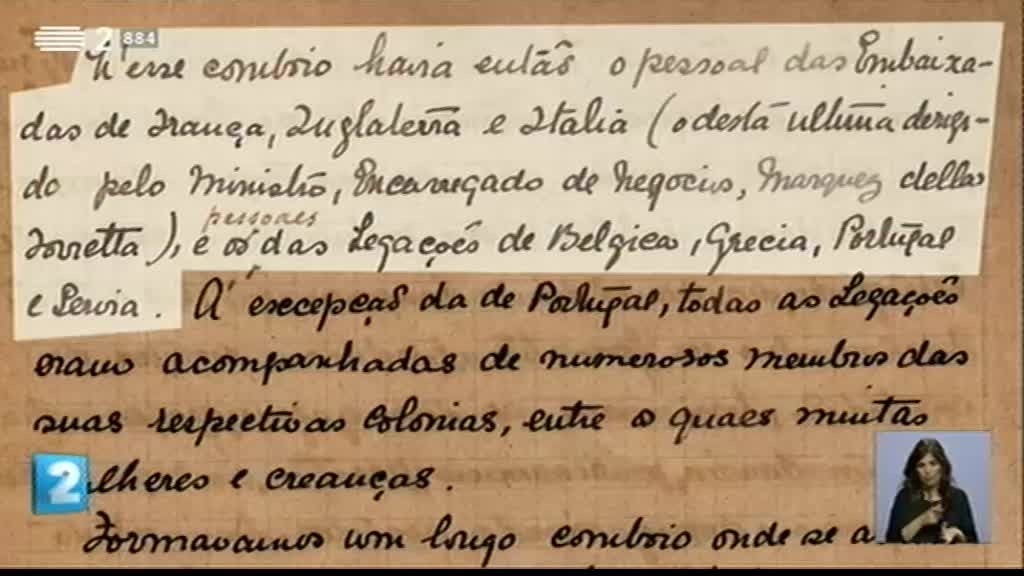 2 884
N'esse comboio havia então o pessoal das Embaixa-
das de França, Inglaterra e Italia (o desta ultima dirigi-
do pelo Ministro, Encarregado de Negocios, Marquez della
pessoaes
Torretta), e os das Legações de Belgica, Grecia, Portugal
e Servia. A' excepção da de Portugal, todas as Legações
eram acompanhadas de numerosos membros das
suas respectivas colonias, entre os quaes muitas
2 lheres e creanças.
Formavamos um longo comboio onde se a